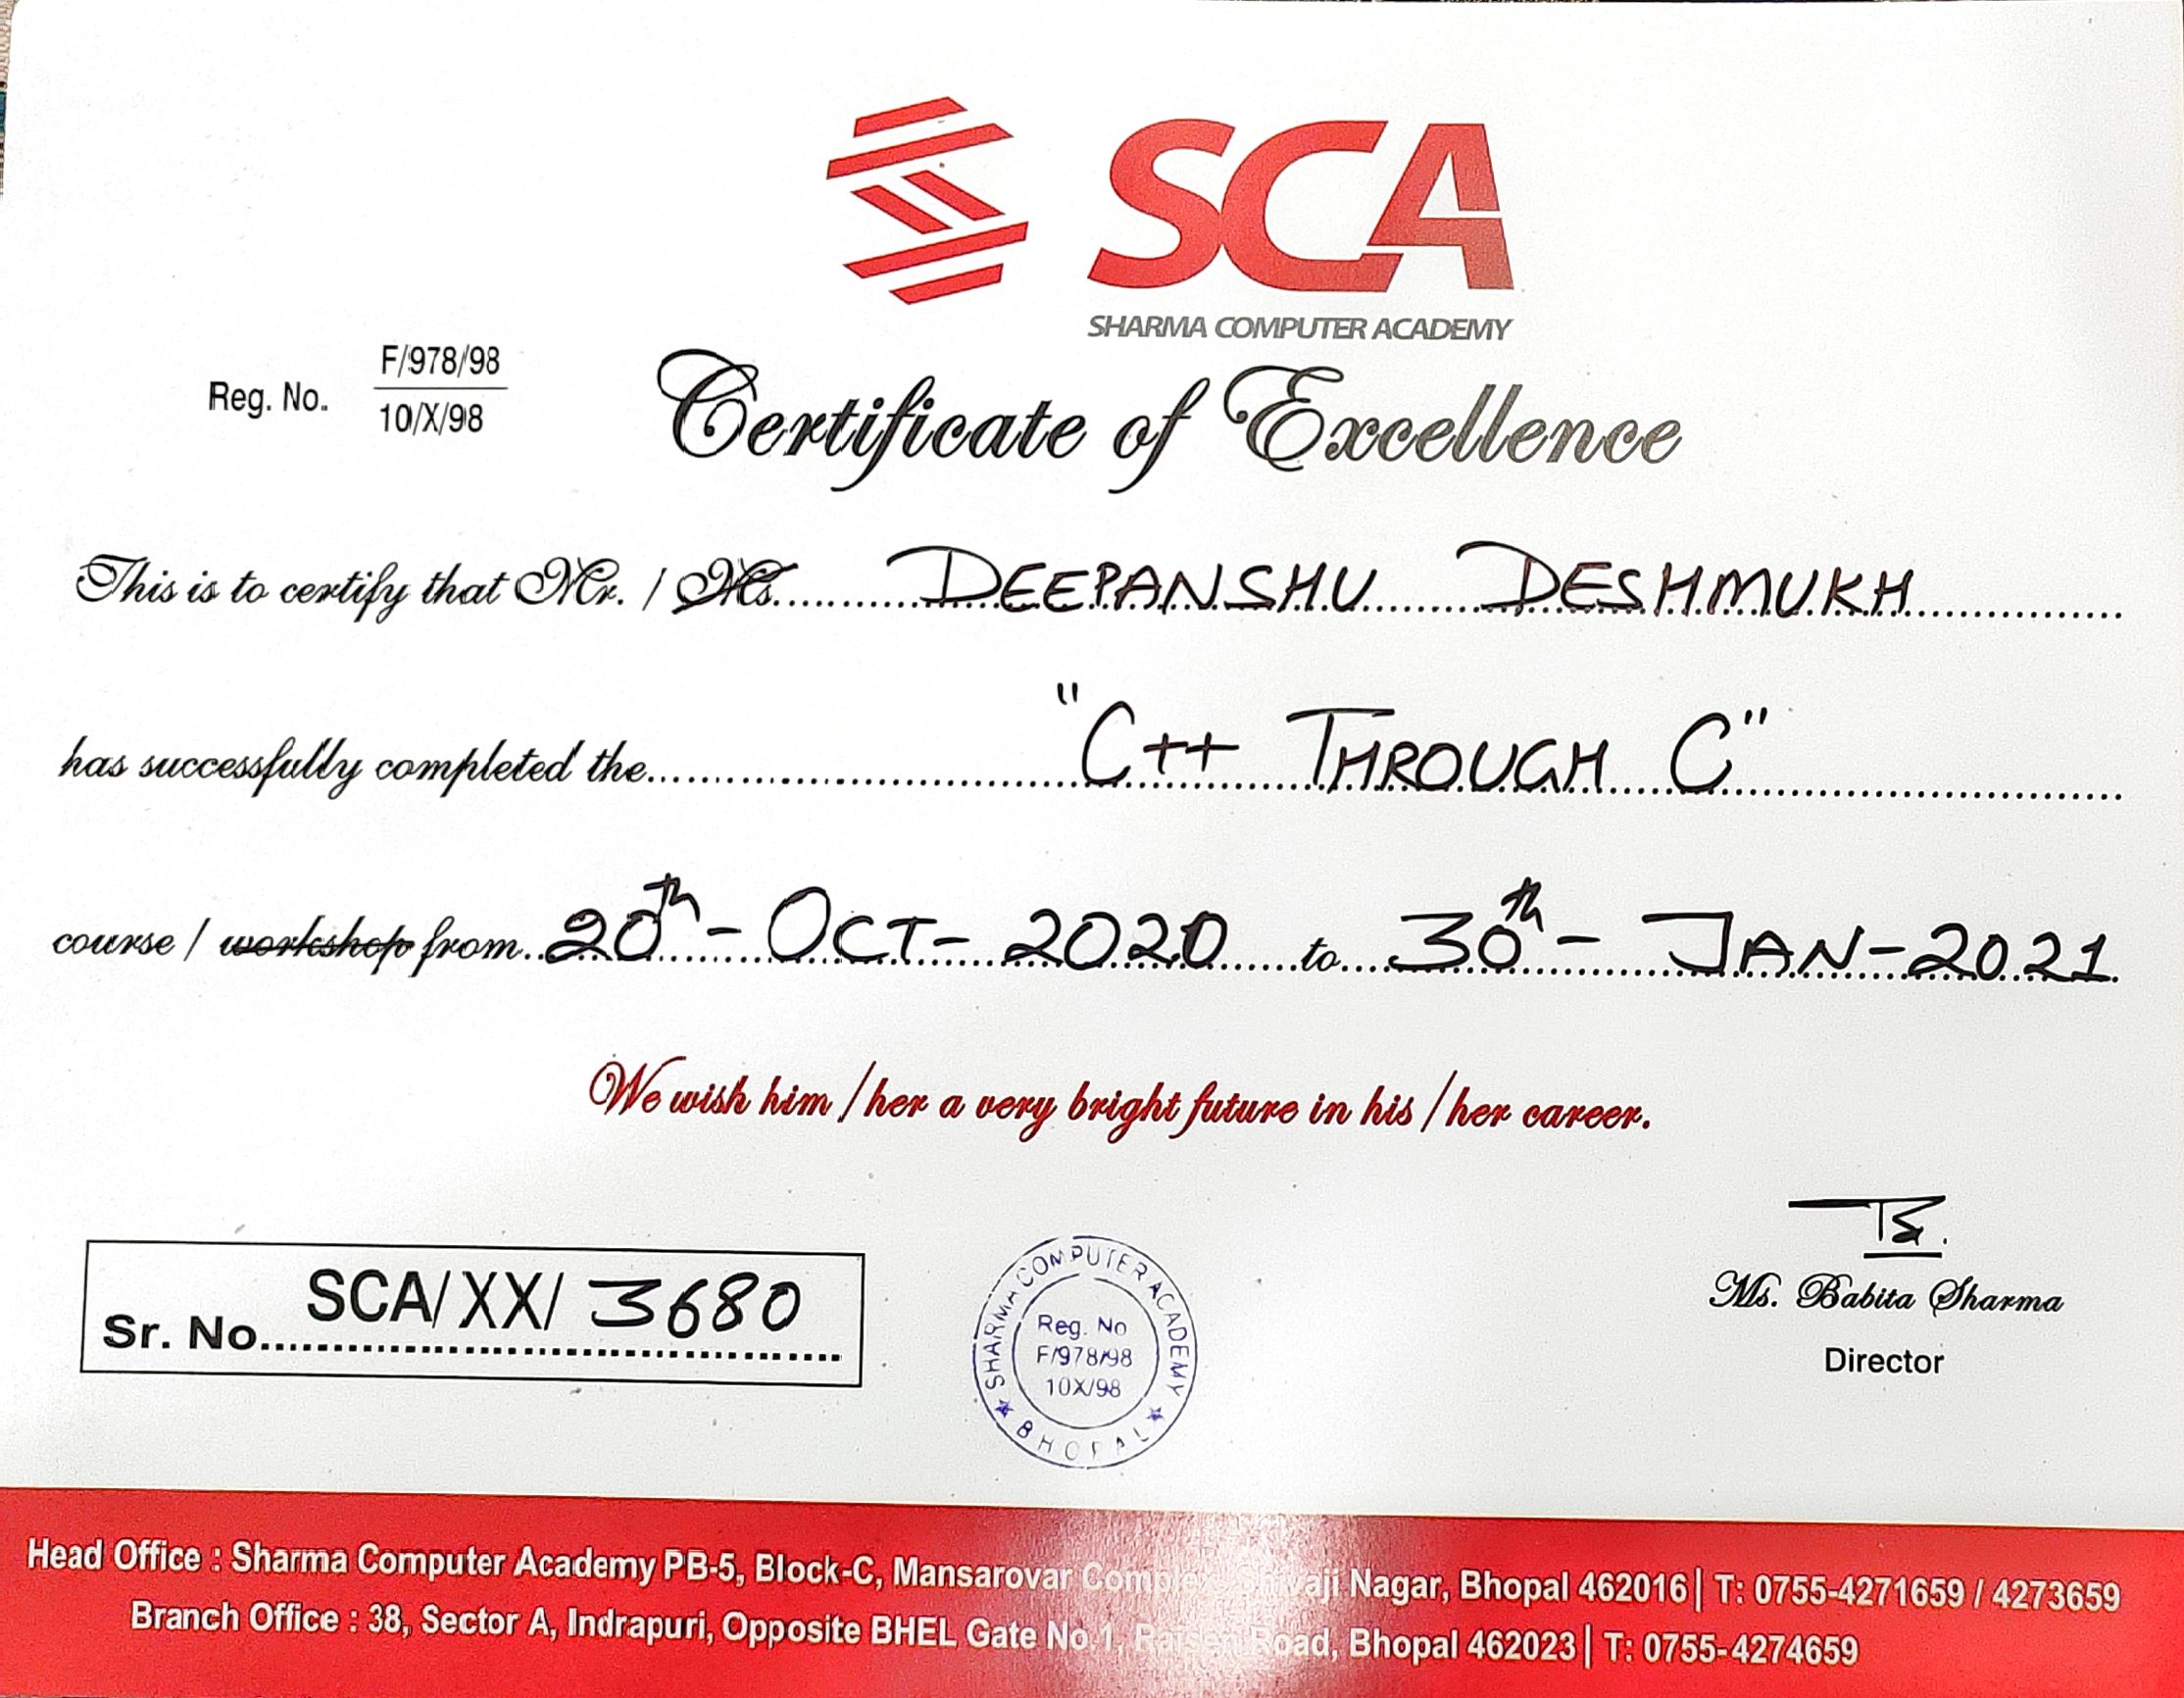 SCA
SHARMA COMPUTER ACADEMY
Reg. No. F/978/98
10/X/98
Certificate of Excellence
This is to certify that Mr. / Ms. DEEPANSHU DESHMUKH
has successfully completed the "C++ THROUGH C"
course / workshop from 20th - OCT - 2020 to 30th - JAN - 2021.
We wish him / her a very bright future in his / her career.
Sr. No. SCA/XX/ 3680
SHARMA COMPUTER ACADEMY
Reg. No
F/978/98
10X/98
★ BHOPAL ★
Ms. Babita Sharma
Director
Head Office : Sharma Computer Academy PB-5, Block-C, Mansarovar Complex, Shivaji Nagar, Bhopal 462016 | T: 0755-4271659 / 4273659
Branch Office : 38, Sector A, Indrapuri, Opposite BHEL Gate No.1, Raisen Road, Bhopal 462023 | T: 0755-4274659